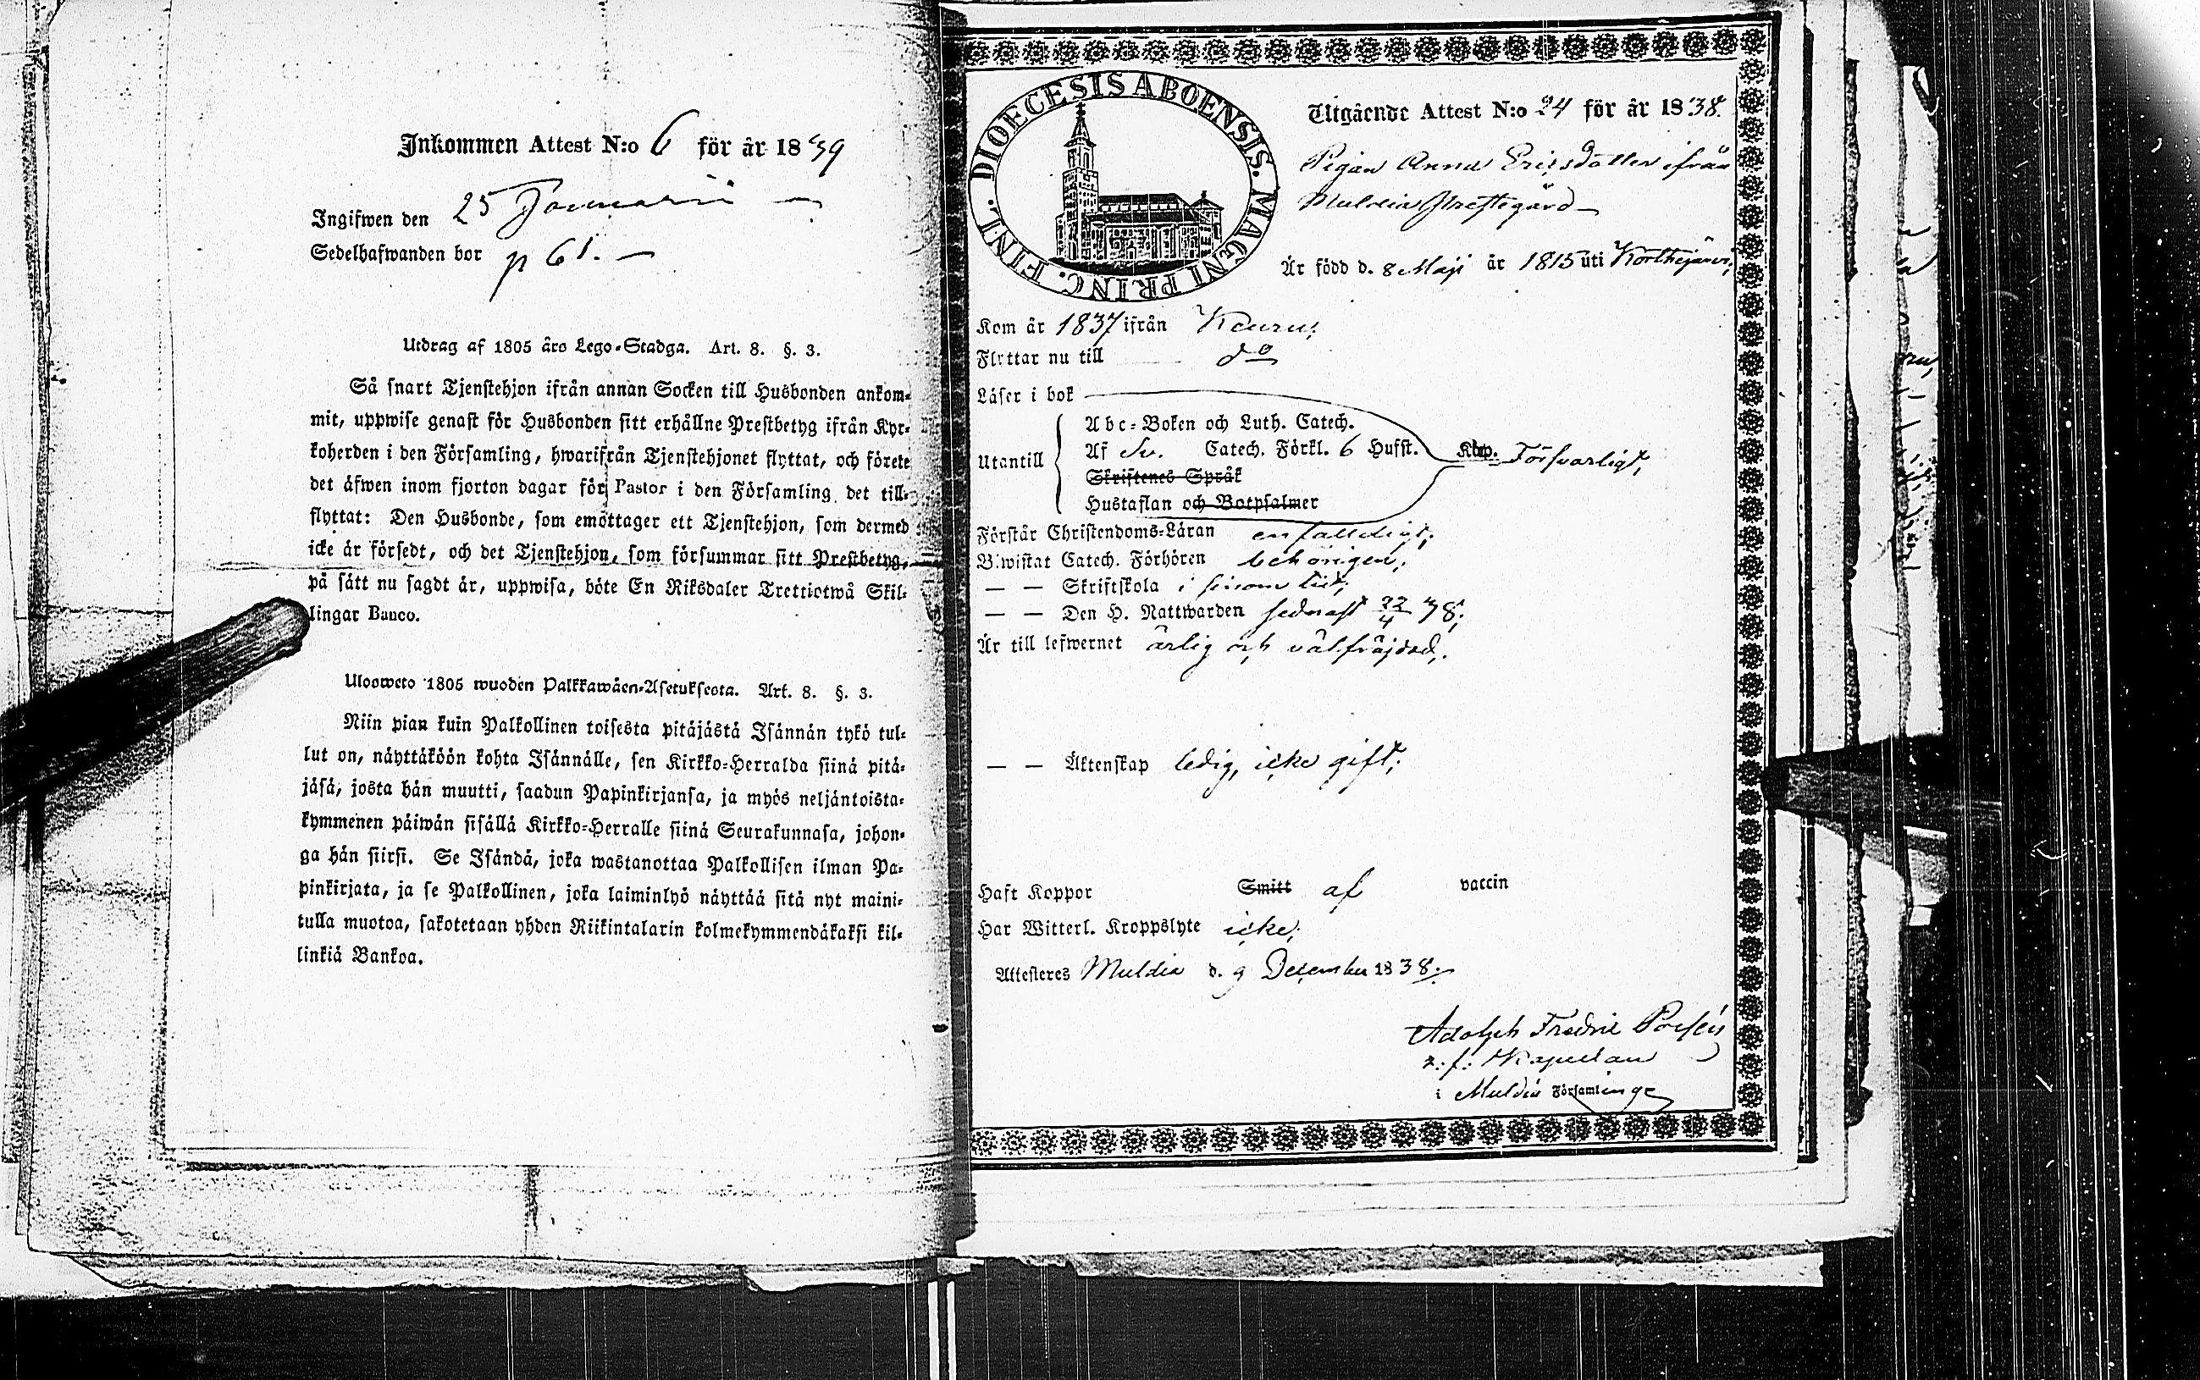 Inkommen Attest N:o 6 för år 1839
Ingifwen den 25 Januarii
Sedelhafwanden bor p 61.
Utdrag af 1805 års Lego-Stadga. Art. 8. §. 3.
Så snart Tjenstehjon ifrån annan Socken till Husbonden ankom-
mit, uppwise genast för Husbonden sitt erhållne Prestbetyg ifrån Kyr-
koherden i den Församling, hwarifrån Tjenstehjonet flyttat, och förete
det äfwen inom fjorton dagar för Pastor i den Församling det till-
flyttat: Den Husbonde, som emottager ett Tjenstehjon, som dermed
icke är försedt, och det Tjenstehjon, som försummar sitt Prestbetyg,
på sätt nu sagdt är, uppwisa, böte En Riksdaler Trettiotwå Skil-
lingar Banco.
Ulosweto 1805 wuoden Palkkawäen-Asetuksesta. Art. 8. §. 3.
Niin pian kuin Palkollinen toisesta pitäjästä Isännän tykö tul-
lut on, näyttäköön kohta Isännälle, sen Kirkko-Herralda siinä pitä-
jäsä, josta hän muutti, saadun Papinkirjansa, ja myös neljäntoista-
kymmenen päiwän sisällä Kirkko-Herralle siinä Seurakunnasa, johon-
ga hän siirsi. Se Isändä, joka wastanottaa Palkollisen ilman Pa-
pinkirjata, ja se Palkollinen, joka laiminlyö näyttää sitä nyt maini-
tulla muotoa, sakotetaan yhden Riikintalarin kolmekymmendäkaksi kil-
linkiä Bankoa.
DIOECESIS ABOENSIS. MAGNI PRINC. FINL.
Utgående Attest N:o 24 för år 1838.
Pigan Anna Ericsdotter ifrån
Muldia Prestegård
Är född d. 8 Maji år 1815 uti Korthejärvi;
Kom år 1837 ifrån Keuru;
Flyttar nu till do
Läser i bok
Utantill
Abc-Boken och Luth. Catech.
Af Sv. Catech. Förkl. 6 Hufst.
Skriftenes Språk
Hustaflan och Botpsalmer
Försvarligt,
Förstår Christendoms-Läran enfaldigt;
Biwistat Catech. Förhören behörigen;
— — Skriftskola i sinom tid;
— — Den H. Nattwarden sednast 22/4 38;
Är till lefwernet ärlig och välfräjdad;
— — Äktenskap ledig, icke gift;
Haft Koppor Smitt af vaccin
Har Witterl. Kroppslyte icke;
Attesteres Muldia d. 9 December 1838.
Adolph Fredric
Kapellan
i Muldia Församlinge